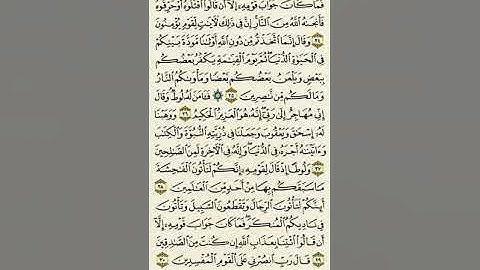 فَمَا كَانَ جَوَابَ قَوْمِهِۦٓ إِلَّآ أَن قَالُوا۟ ٱقْتُلُوهُ أَوْ حَرِّقُوهُ
فَأَنجَىٰهُ ٱللَّهُ مِنَ ٱلنَّارِ إِنَّ فِى ذَٰلِكَ لَءَايَٰتٍ لِّقَوْمٍ يُؤْمِنُونَ
٢٤ وَقَالَ إِنَّمَا ٱتَّخَذْتُم مِّن دُونِ ٱللَّهِ أَوْثَٰنًا مَّوَدَّةَ بَيْنِكُمْ
فِى ٱلْحَيَوٰةِ ٱلدُّنْيَا ثُمَّ يَوْمَ ٱلْقِيَٰمَةِ يَكْفُرُ بَعْضُكُم
بِبَعْضٍ وَيَلْعَنُ بَعْضُكُم بَعْضًا وَمَأْوَىٰكُمُ ٱلنَّارُ
وَمَا لَكُم مِّن نَّٰصِرِينَ ٢٥ ۞ فَـَٔامَنَ لَهُۥ لُوطٌ وَقَالَ
إِنِّى مُهَاجِرٌ إِلَىٰ رَبِّىٓ إِنَّهُۥ هُوَ ٱلْعَزِيزُ ٱلْحَكِيمُ ٢٦ وَوَهَبْنَا
لَهُۥٓ إِسْحَٰقَ وَيَعْقُوبَ وَجَعَلْنَا فِى ذُرِّيَّتِهِ ٱلنُّبُوَّةَ وَٱلْكِتَٰبَ
وَءَاتَيْنَٰهُ أَجْرَهُۥ فِى ٱلدُّنْيَا وَإِنَّهُۥ فِى ٱلْءَاخِرَةِ لَمِنَ ٱلصَّٰلِحِينَ
٢٧ وَلُوطًا إِذْ قَالَ لِقَوْمِهِۦٓ إِنَّكُمْ لَتَأْتُونَ ٱلْفَٰحِشَةَ
مَا سَبَقَكُم بِهَا مِنْ أَحَدٍ مِّنَ ٱلْعَٰلَمِينَ ٢٨
أَئِنَّكُمْ لَتَأْتُونَ ٱلرِّجَالَ وَتَقْطَعُونَ ٱلسَّبِيلَ وَتَأْتُونَ
فِى نَادِيكُمُ ٱلْمُنكَرَ فَمَا كَانَ جَوَابَ قَوْمِهِۦٓ إِلَّآ
أَن قَالُوا۟ ٱئْتِنَا بِعَذَابِ ٱللَّهِ إِن كُنتَ مِنَ ٱلصَّٰدِقِينَ
٢٩ قَالَ رَبِّ ٱنصُرْنِى عَلَى ٱلْقَوْمِ ٱلْمُفْسِدِينَ ٣٠